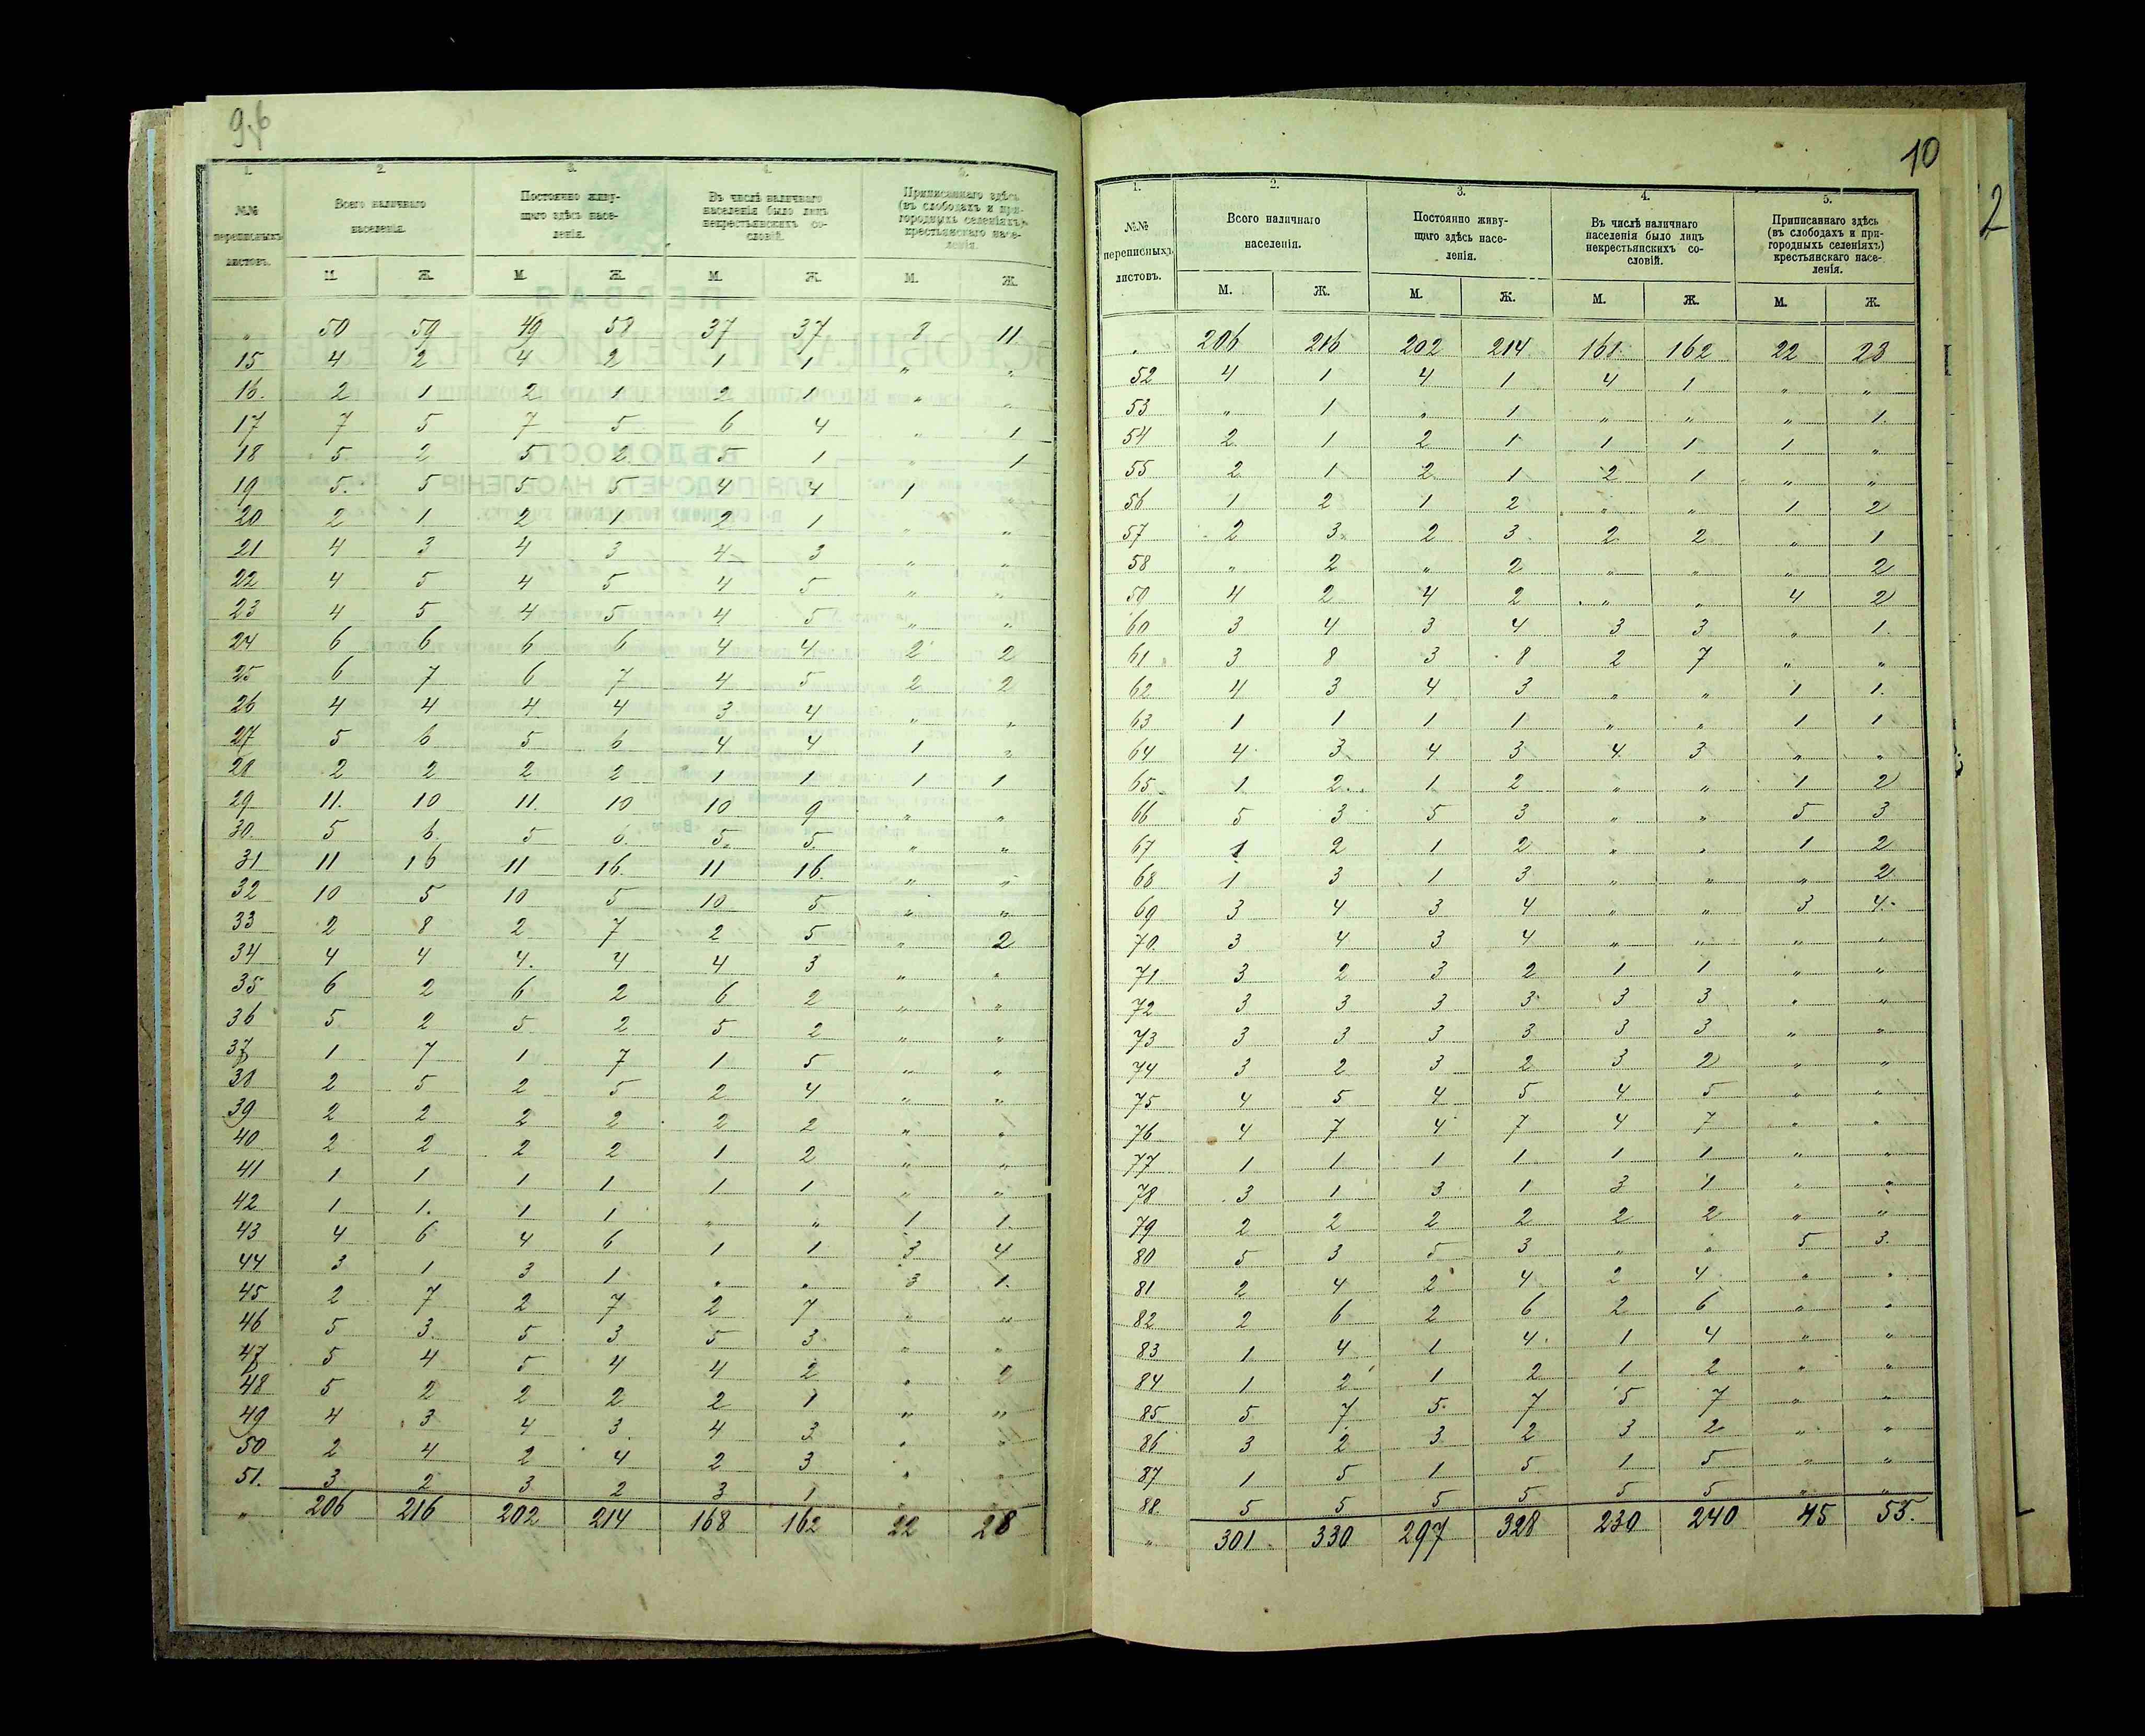 9б
1. 2. 3. 4. 5.
№№ переписныхъ листовъ. Всего наличнаго населенія. Постоянно живущаго здѣсь населенія. Въ числѣ наличнаго населенія было лицъ некрестьянскихъ сословій. Приписаннаго здѣсь (въ слободахъ и пригородныхъ селеніяхъ) крестьянскаго населенія.
М. Ж. М. Ж. М. Ж. М. Ж.
„ 50 59 49 58 37 37 8 11
15 4 2 4 2 1 1 „ „
16. 2 1 2 1 2 1 „ „
17 7 5 7 5 6 4 „ 1
18 5 2 5 2 5 1 „ 1
19 5. 5 5 5 4 4 1 „
20 2 1 2 1 2 1 „ „
21 4 3 4 3 4 3 „ „
22 4 5 4 5 4 5 „ „
23 4 5 4 5 4 5 „ „
24 6 6 6 6 4 4 2 2
25 6 7 6 7 4 5 2 2
26 4 4 4 4 3 4 „ „
27 5 6 5 6 4 4 1 „
28 2 2 2 2 1 1 1 1
29 11. 10 11. 10 10 9 „ „
30. 5 6. 5 6. 5. 5. „ „
31 11 16 11 16. 11 16. „ „
32 10 5 10 5 10 5 „ „
33 2 8 2 7 2 5 „ 2
34 4 4 4. 4 4 3 „ „
35 6 2 6 2 6 2 „ „
36 5 2 5 2 5 2 „ „
37 1 7 1 7 1 5 „ „
38 2 5 2 5 2 4 „ „
39 2 2 2 2 2 2 „ „
40 2 2 2 2 1 2 „ „
41 1 1 1 1 1 1 „ „
42 1 1. 1 1 „ „ 1 1.
43 4 6 4 6 1 1 3 4
44 3 1 3 1 „ „ 3 1.
45 2 7 2 7 2 7 „ „
46 5 3. 5 3 5 3 „ „
47 5 4 5 4 4 2 „ 2
48 5 2 2 2 2 1 „ „
49 4 3 4 3. 4 3 „ „
50 2 4 2 4 2 3 „ „
51. 3 2 3 2 3 1 „ „
„ 206 216 202 214 168 162 22 28
10
1. 2. 3. 4. 5.
№№ переписныхъ листовъ. Всего наличнаго населенія. Постоянно живущаго здѣсь населенія. Въ числѣ наличнаго населенія было лицъ некрестьянскихъ сословій. Приписаннаго здѣсь (въ слободахъ и пригородныхъ селеніяхъ) крестьянскаго населенія.
М. Ж. М. Ж. М. Ж. М. Ж.
„ 206 216 202 214 161 162 22 23
52 4 1 4 1 4 1 „ „
53 „ 1 „ 1 „ „ „ 1.
54 2 1 2 1 1 1 1 „
55 2 1 2 1 2 1 „ „
56 1 2 1 2 „ „ 1 2
57 2 3 2 3 2 2 „ 1
58 „ 2 „ 2 „ „ „ 2
59 4 2 4 2 „ „ 4 2
60 3 4 3 4 3 3 „ 1.
61 3 8 3 8 2 7 „ „
62 4 3 4 3 „ „ 1 1.
63 1 1 1 1 „ „ 1 1
64 4 3 4 3 4 3 „ „
65 1 2 1 2 „ „ 1 2
66 5 3 5 3 „ „ 5 3
67 1 2 1 2 „ „ 1 2
68 1 3 1 3 „ „ „ 2
69 3 4 3 4 „ „ 3 4.
70 3 4 3 4 „ „ „ „
71 3 2 3 2 1 1 „ „
72 3 3 3 3 3 3 „ „
73 3 3 3 3 3 3 „ „
74 3 2 3 2 3 2 „ „
75 4 5 4 5 4 5 „ „
76 4 7 4 7 4 7 „ „
77 1 1 1 1 1 1 „ „
78 3 1 3 1 3 1 „ „
79 2 2 2 2 2 2 „ „
80 5 3 5 3 „ „ 5 3.
81 2 4 2 4 2 4 „ „
82 2 6 2 6 2 6 „ „
83 1 4 1 4 1 4 „ „
84 1 2 1 2 1 2 „ „
85 5 7 5 7 5 7 „ „
86 3 2 3 2 3 2 „ „
87 1 5 1 5 1 5 „ „
88 5 5 5 5 5 5 „ „
„ 301 330 297 328 230 240 45 55.
2